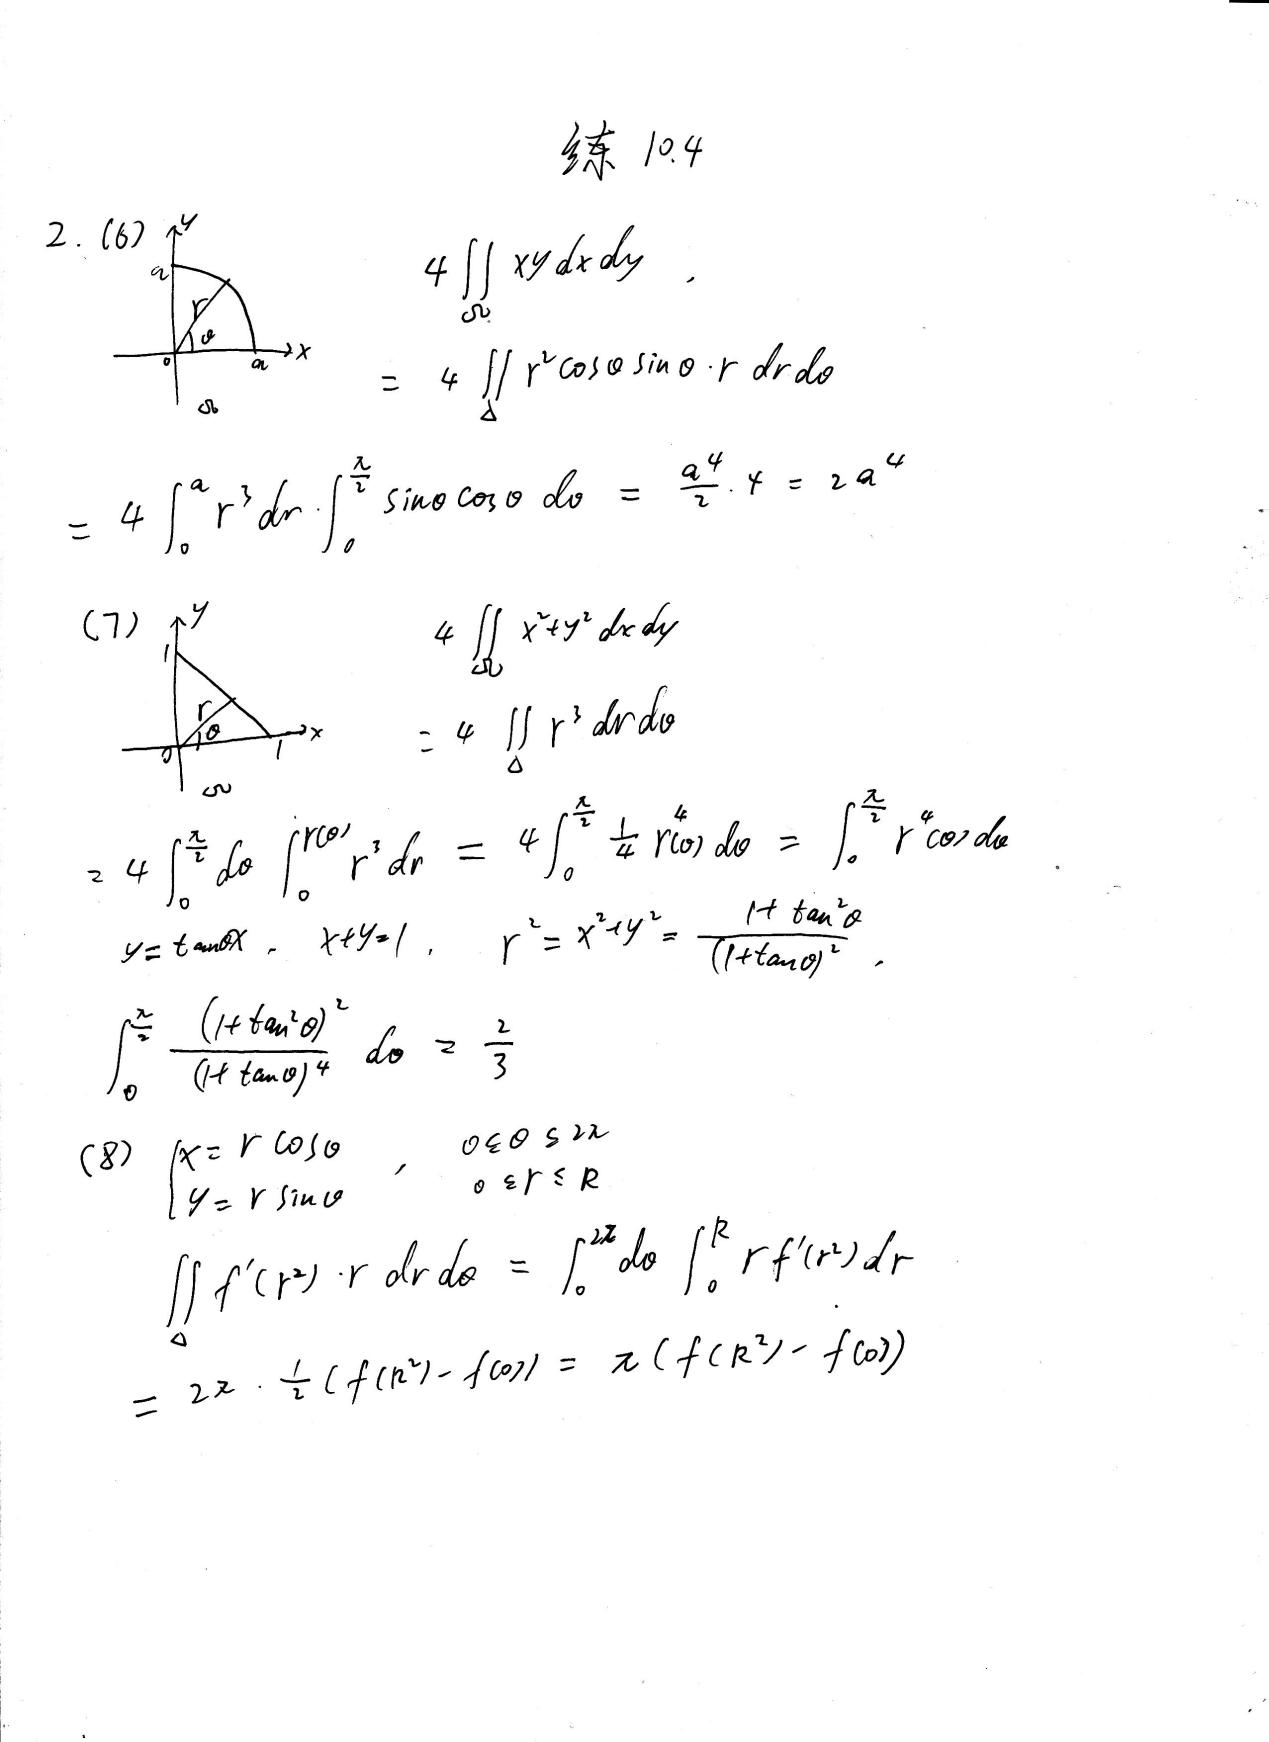 练 10.4
2. (6) y a r θ 0 a x Ω
4∬_Ω xy dx dy ,
= 4∬_Δ r² cosθ sinθ · r dr dθ
= 4 ∫_0^a r³ dr · ∫_0^{π/2} sinθ cosθ dθ = a⁴/2 · 4 = 2a⁴
(7) y 1 r θ 0 1 x Ω
4∬_Ω x²+y² dx dy
= 4∬_Δ r³ dr dθ
= 4 ∫_0^{π/2} dθ ∫_0^{r(θ)} r³ dr = 4 ∫_0^{π/2} 1/4 r⁴(θ) dθ = ∫_0^{π/2} r⁴(θ) dθ
y = tanθx , x+y=1 , r² = x²+y² = (1+tan²θ)/(1+tanθ)² ,
∫_0^{π/2} (1+tan²θ)²/(1+tanθ)⁴ dθ = 2/3
(8) { x = r cosθ , 0≤θ≤2π
y = r sinθ 0≤r≤R
∬_Δ f'(r²) · r dr dθ = ∫_0^{2π} dθ ∫_0^R r f'(r²) dr
= 2π · 1/2 (f(R²) - f(0)) = π (f(R²) - f(0))